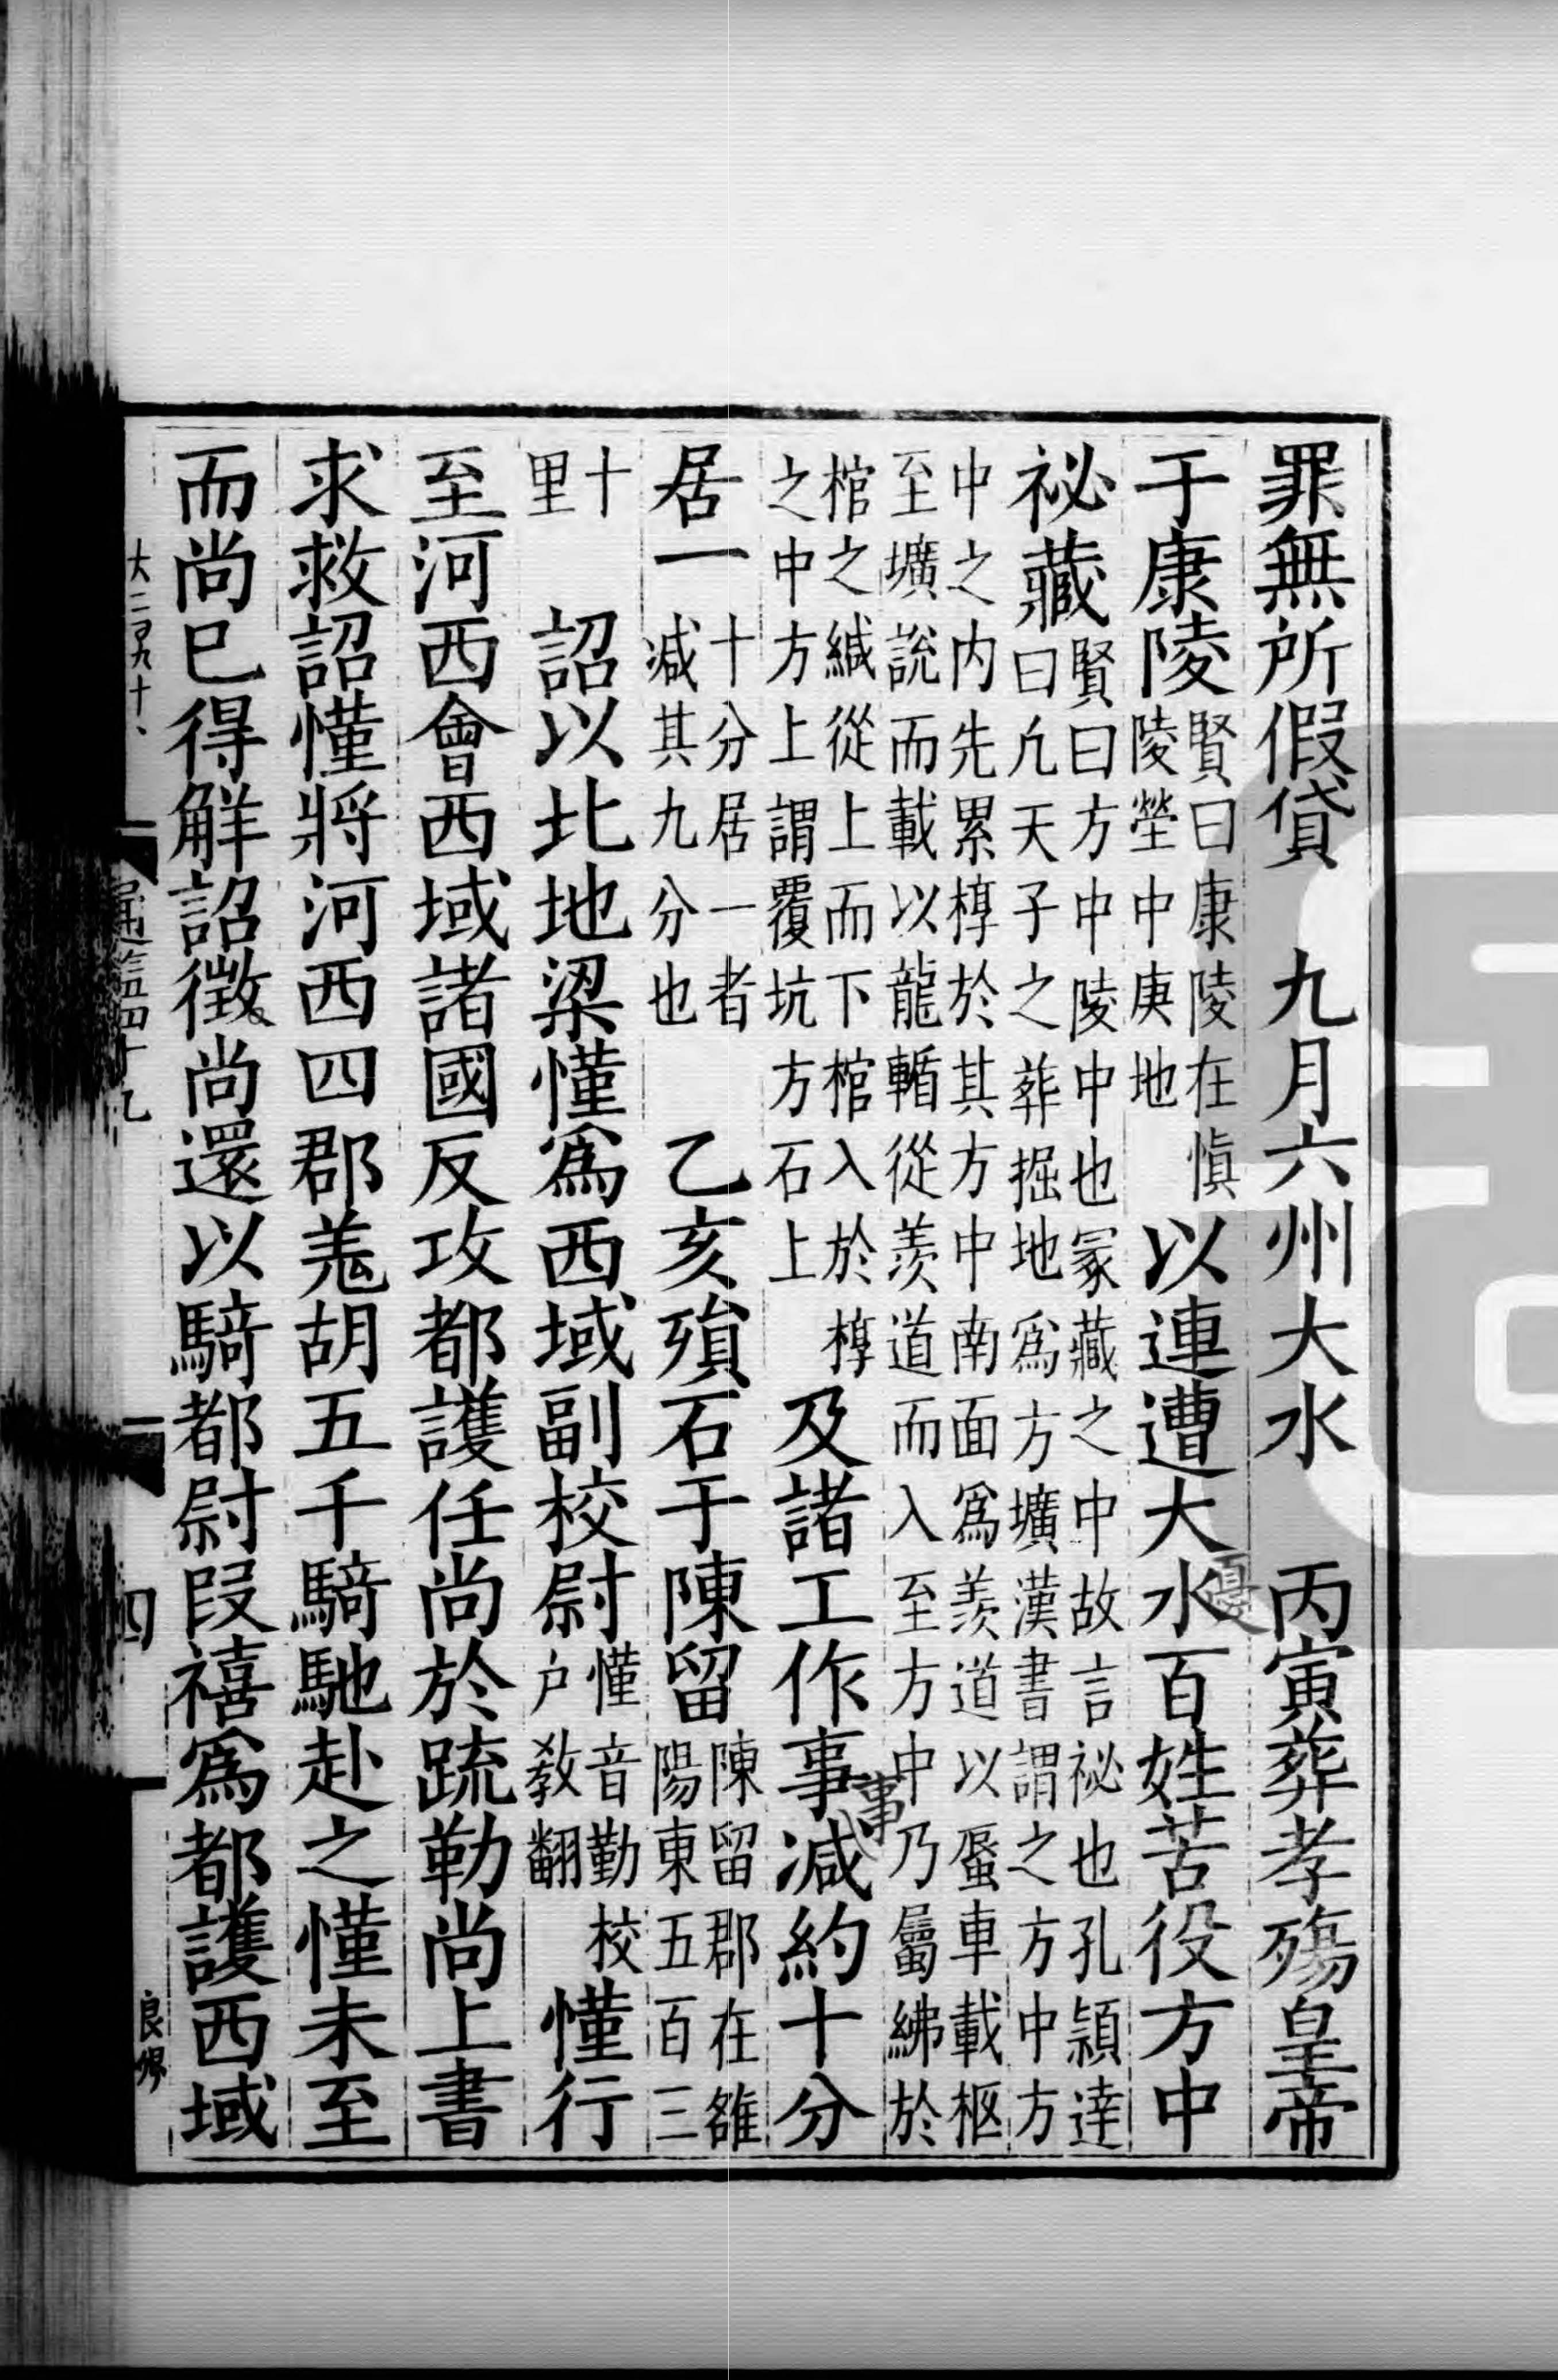 罪無所假貸　九月六州大水　丙寅葬孝殤皇帝
于康陵賢曰康陵在慎陵塋中庚地以連遭大水百姓苦役方中
憂
祕藏賢曰方中陵中也冢藏之中故言祕也孔穎達曰凡天子之葬掘地爲方壙漢書謂之方中方
中之内先累椁於其方中南面爲羨道以蜃車載柩至壙說而載以龍輴從羨道而入至方中乃屬紼於
棺之緘從上而下棺入於椁之中方上謂覆坑方石上及諸工作事減約十分
事
居一十分居一者減其九分也　乙亥殞石于陳留陳留郡在雒陽東五百三
十里　詔以北地梁慬爲西域副校尉慬音勤校户敎翻慬行
至河西會西域諸國反攻都護任尚於疏勒尚上書
求救詔慬將河西四郡羗胡五千騎馳赴之慬未至
而尚已得解詔徵尚還以騎都尉段禧爲都護西域
通鑑四十九
四